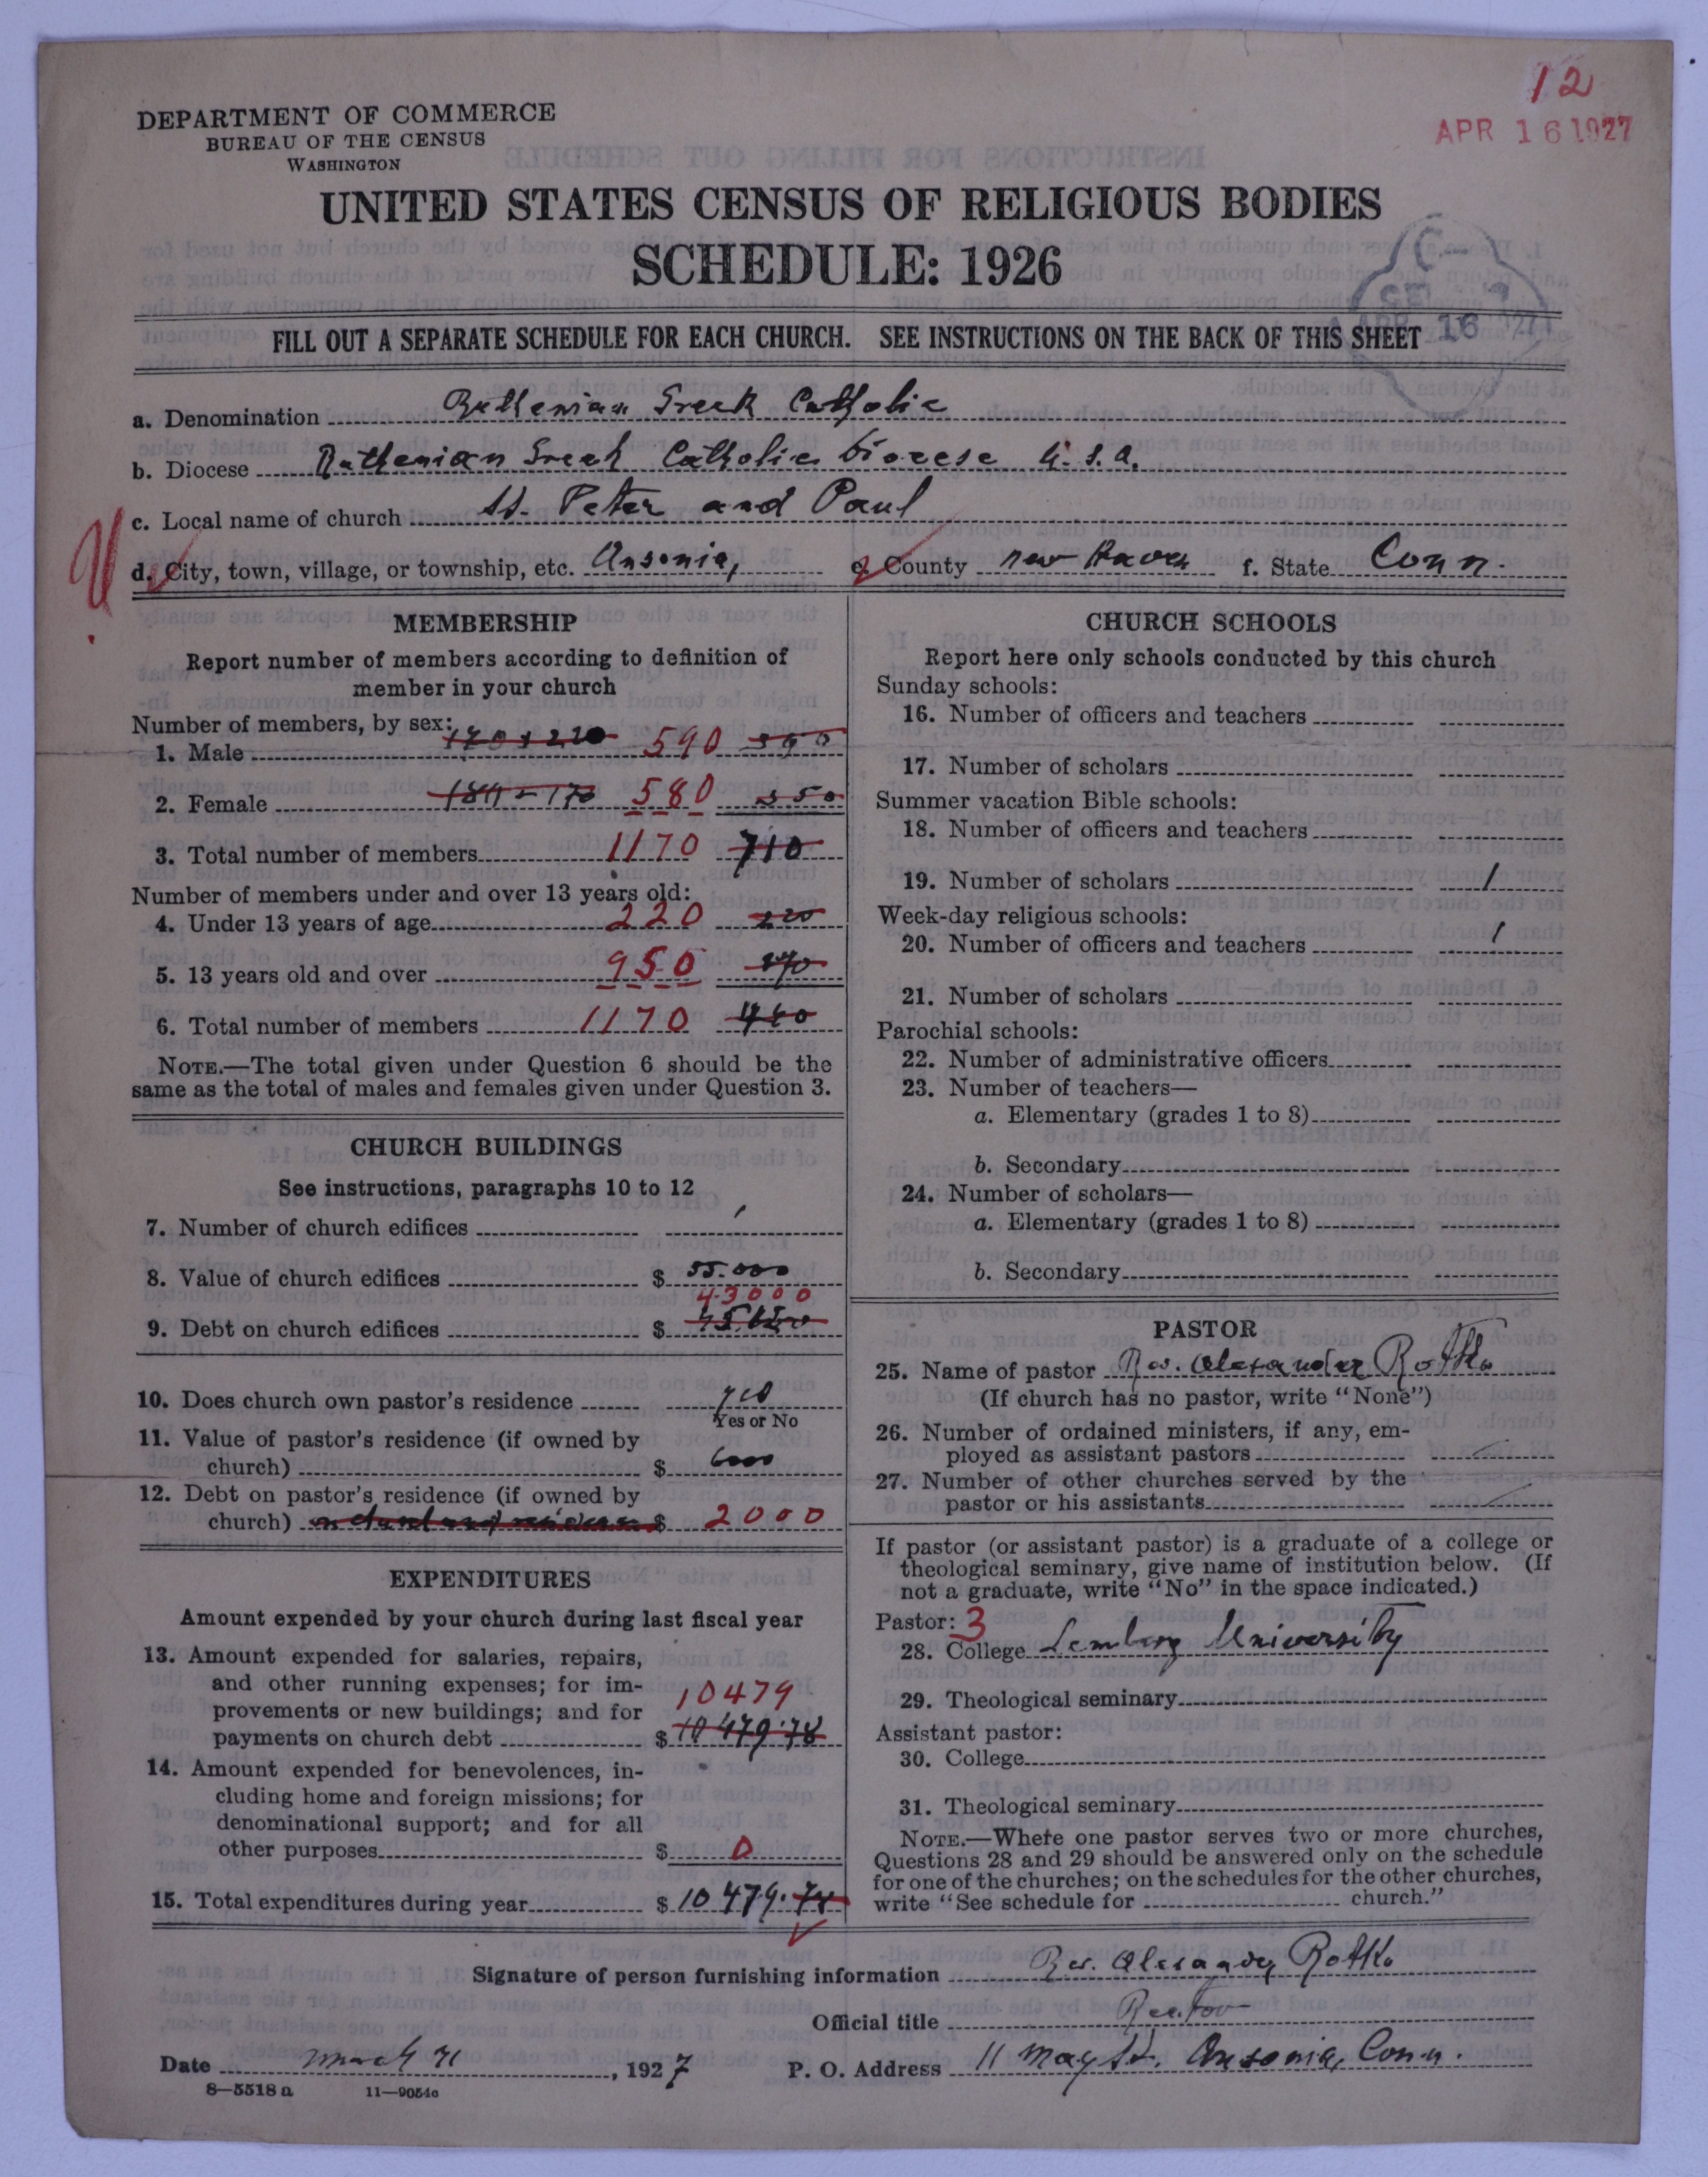 12
APR 16 1927
DEPARTMENT OF COMMERCE
BUREAU OF THE CENSUS
WASHINGTON
UNITED STATES CENSUS OF RELIGIOUS BODIES
SCHEDULE: 1926
APR 16
FILL OUT A SEPARATE SCHEDULE FOR EACH CHURCH. SEE INSTRUCTIONS ON THE BACK OF THIS SHEET
a. Denomination Ruthenian Greek Catholic
b. Diocese Ruthenian Greek Catholic Diocese U.S.A.
c. Local name of church St. Peter and Paul
d. City, town, village, or township, etc. Ansonia, e. County New Haven f. State Conn.
MEMBERSHIP
Report number of members according to definition of
member in your church
Number of members, by sex:
1. Male 590
2. Female 580
3. Total number of members 1170 710
Number of members under and over 13 years old:
4. Under 13 years of age 220 220
5. 13 years old and over 950
6. Total number of members 1170
NOTE.—The total given under Question 6 should be the
same as the total of males and females given under Question 3.
CHURCH BUILDINGS
See instructions, paragraphs 10 to 12
7. Number of church edifices 1
8. Value of church edifices $ 55.000
43000
9. Debt on church edifices $
10. Does church own pastor's residence yes
Yes or No
11. Value of pastor's residence (if owned by
church) $ 6000
12. Debt on pastor's residence (if owned by
church) $ 2000
EXPENDITURES
Amount expended by your church during last fiscal year
13. Amount expended for salaries, repairs,
and other running expenses; for im-
provements or new buildings; and for 10479
payments on church debt $ 10479.78
14. Amount expended for benevolences, in-
cluding home and foreign missions; for
denominational support; and for all
other purposes $ 0
15. Total expenditures during year $ 10479.78
CHURCH SCHOOLS
Report here only schools conducted by this church
Sunday schools:
16. Number of officers and teachers
17. Number of scholars
Summer vacation Bible schools:
18. Number of officers and teachers
19. Number of scholars 1
Week-day religious schools:
20. Number of officers and teachers 1
21. Number of scholars
Parochial schools:
22. Number of administrative officers
23. Number of teachers—
a. Elementary (grades 1 to 8)
b. Secondary
24. Number of scholars—
a. Elementary (grades 1 to 8)
b. Secondary
PASTOR
25. Name of pastor Rev. Alexander Rotko
(If church has no pastor, write "None")
26. Number of ordained ministers, if any, em-
ployed as assistant pastors
27. Number of other churches served by the
pastor or his assistants
If pastor (or assistant pastor) is a graduate of a college or
theological seminary, give name of institution below. (If
not a graduate, write "No" in the space indicated.)
Pastor: 3
28. College Lemberg University
29. Theological seminary
Assistant pastor:
30. College
31. Theological seminary
NOTE.—Where one pastor serves two or more churches,
Questions 28 and 29 should be answered only on the schedule
for one of the churches; on the schedules for the other churches,
write "See schedule for church."
Signature of person furnishing information Rev. Alexander Rotko
Official title Rector
Date March 31, 1927 P. O. Address 11 May St. Ansonia, Conn.
8—5518 a 11—9054a